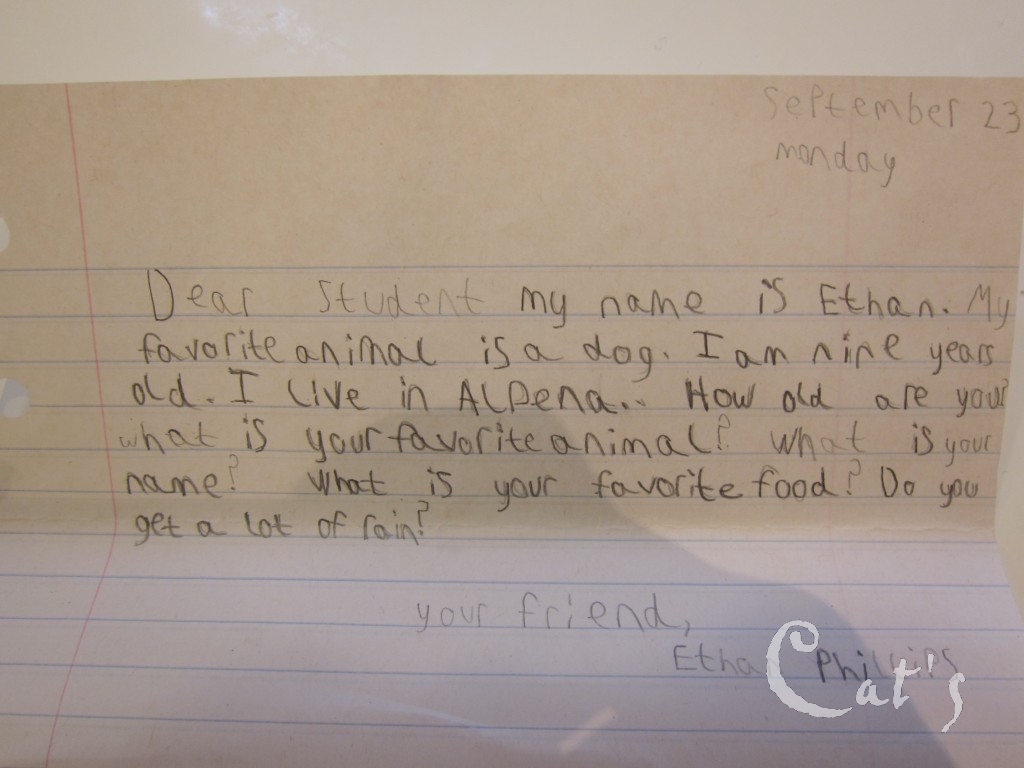 September 23
monday
Dear Student my name is Ethan. My
favorite animal is a dog. I am nine years
old. I live in Alpena.. How old are you?
what is your favorite animal? what is your
name? what is your favorite food? Do you
get a lot of rain?
your friend,
Ethan Phillips
Cat's